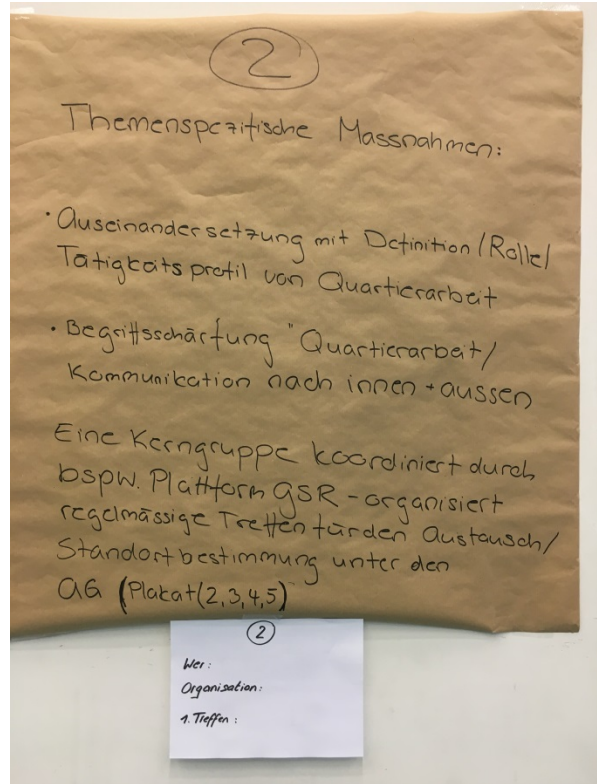 2
Themenspezifische Massnahmen:
• Auseinandersetzung mit Definition/Rolle/
Tätigkeitsprofil von Quartierarbeit
• Begriffsschärfung "Quartierarbeit/
Kommunikation nach innen + aussen
Eine Kerngruppe koordiniert durch
bspw. Plattform GSR - organisiert
regelmässige Treffen für den Austausch/
Standortbestimmung unter den
AG (Plakat(2,3,4,5)
2
Wer:
Organisation:
1. Treffen: